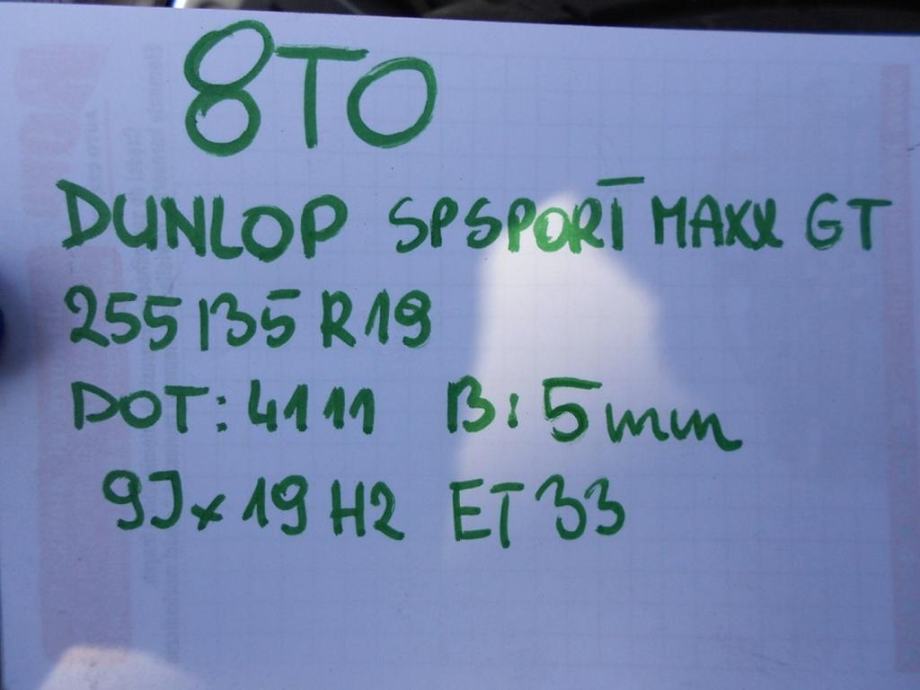 8TO
DUNLOP SPSPORT MAXX GT
255/35 R19
DOT: 4111 B: 5mm
9Jx19 H2 ET 33